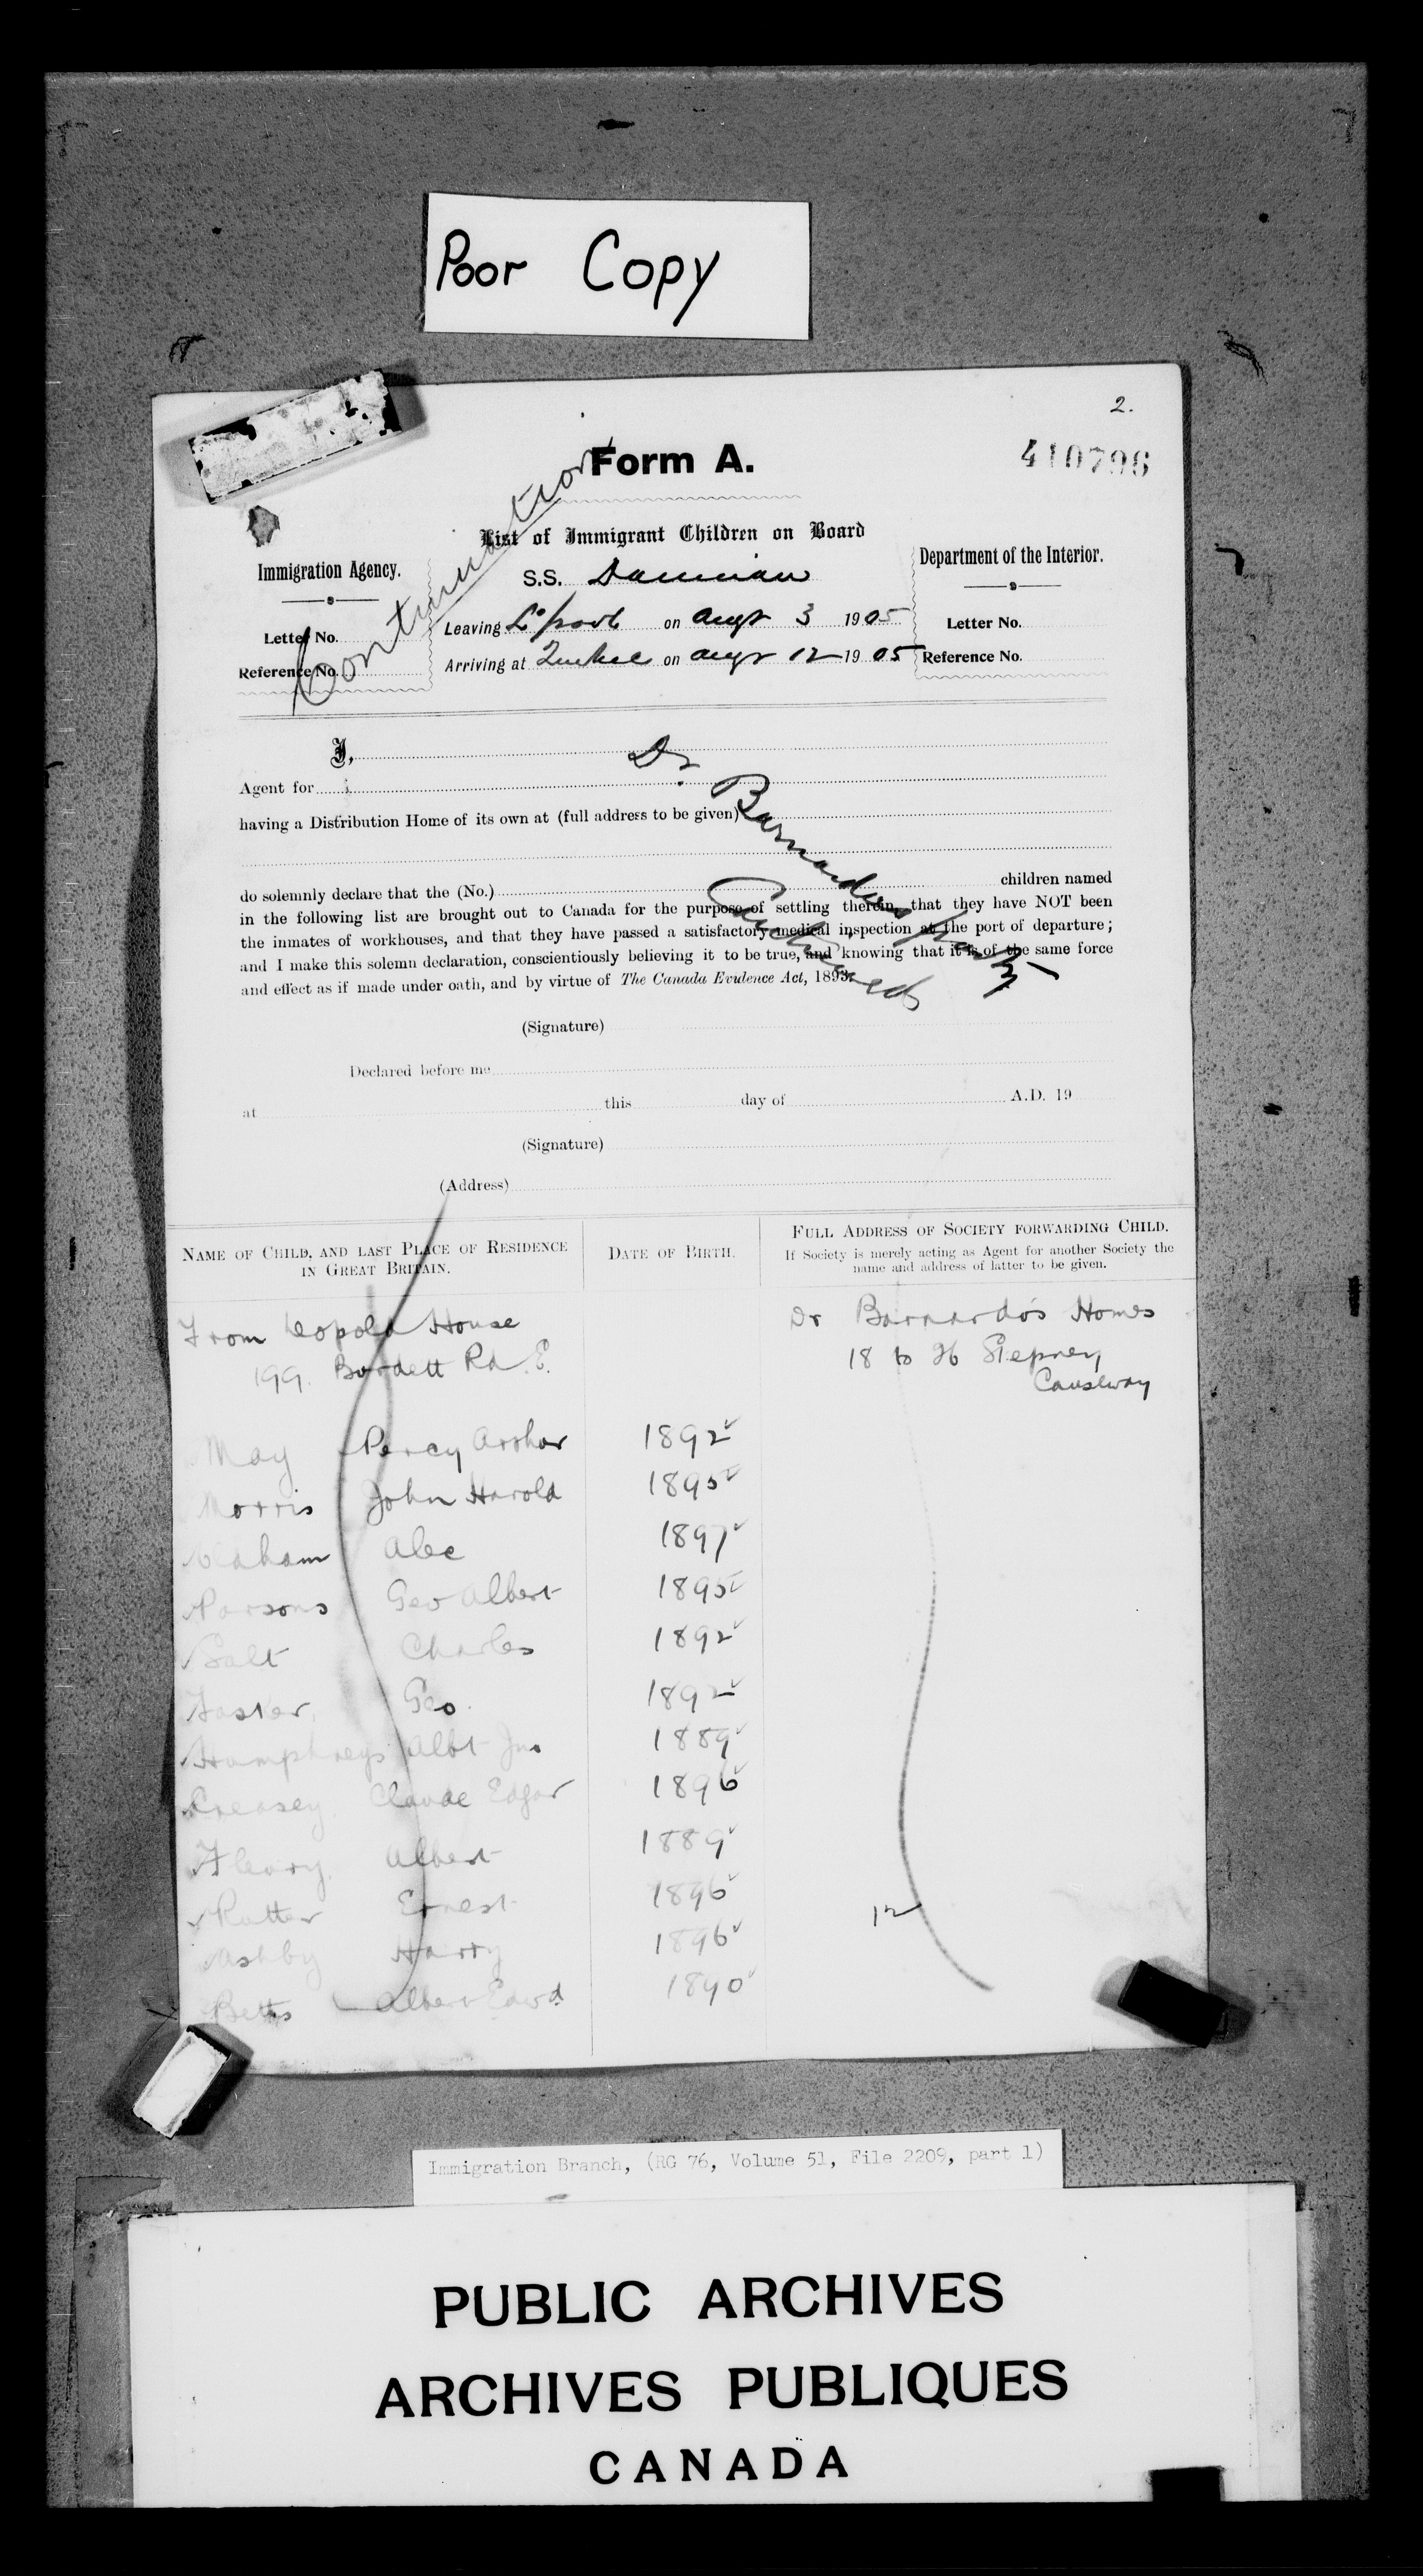 Poor Copy
2.
410796
Form A.
Continuation
List of Immigrant Children on Board
Immigration Agency.
Department of the Interior.
S.S.
Letter No.
Leaving L'pool on Augt 3 1905
Letter No.
Reference No.
Arriving at Quebec on Augt 12 1905
Reference No.
I,
Dr
Agent for
Barnardos party
having a Distribution Home of its own at (full address to be given)
do solemnly declare that the (No.) children named
Continued
in the following list are brought out to Canada for the purpose of settling therein, that they have NOT been
the inmates of workhouses, and that they have passed a satisfactory medical inspection at the port of departure;
and I make this solemn declaration, conscientiously believing it to be true, and knowing that it is of the same force
and effect as if made under oath, and by virtue of The Canada Evidence Act, 1893.
(Signature)
Declared before me
at this day of A.D. 19
(Signature)
(Address)
NAME OF CHILD, AND LAST PLACE OF RESIDENCE
IN GREAT BRITAIN.
DATE OF BIRTH.
FULL ADDRESS OF SOCIETY FORWARDING CHILD.
If Society is merely acting as Agent for another Society the
name and address of latter to be given.
From Leopold House
199. Burdett Rd. E.
Dr Barnardo's Homes
18 to 26 Stepney
Causeway
May Percy Arthur 1892
Morris John Harold 1895
Alec 1897
Parsons Geo Albert 1895
Salt Charles 1892
Geo. 1892
Humphreys Albt Jno 1889
Creasey Claude Edgar 1896
Fleury Albert 1889
Rutter Ernest 1896
12
Ashby Harry 1896
Betts Albert Edwd. 1890
Immigration Branch, (RG 76, Volume 51, File 2209, part 1)
PUBLIC ARCHIVES
ARCHIVES PUBLIQUES
CANADA